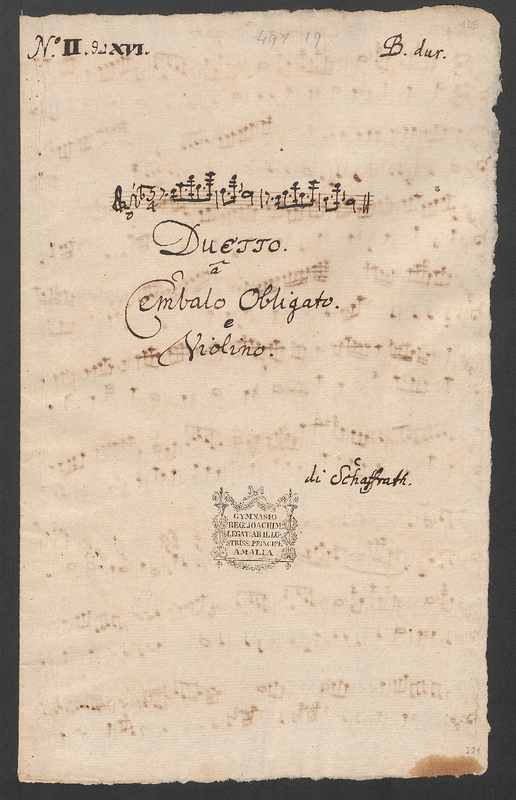 N.º II. du XVI.
B. dur.
Duetto.
â
Cembalo Obligato.
e
Violino.
di Schaffrath.
GYMNASIO
REG: JOACHIM:
LEGAT: AB ILLU-
STRISS: PRINCIPE
AMALIA
221